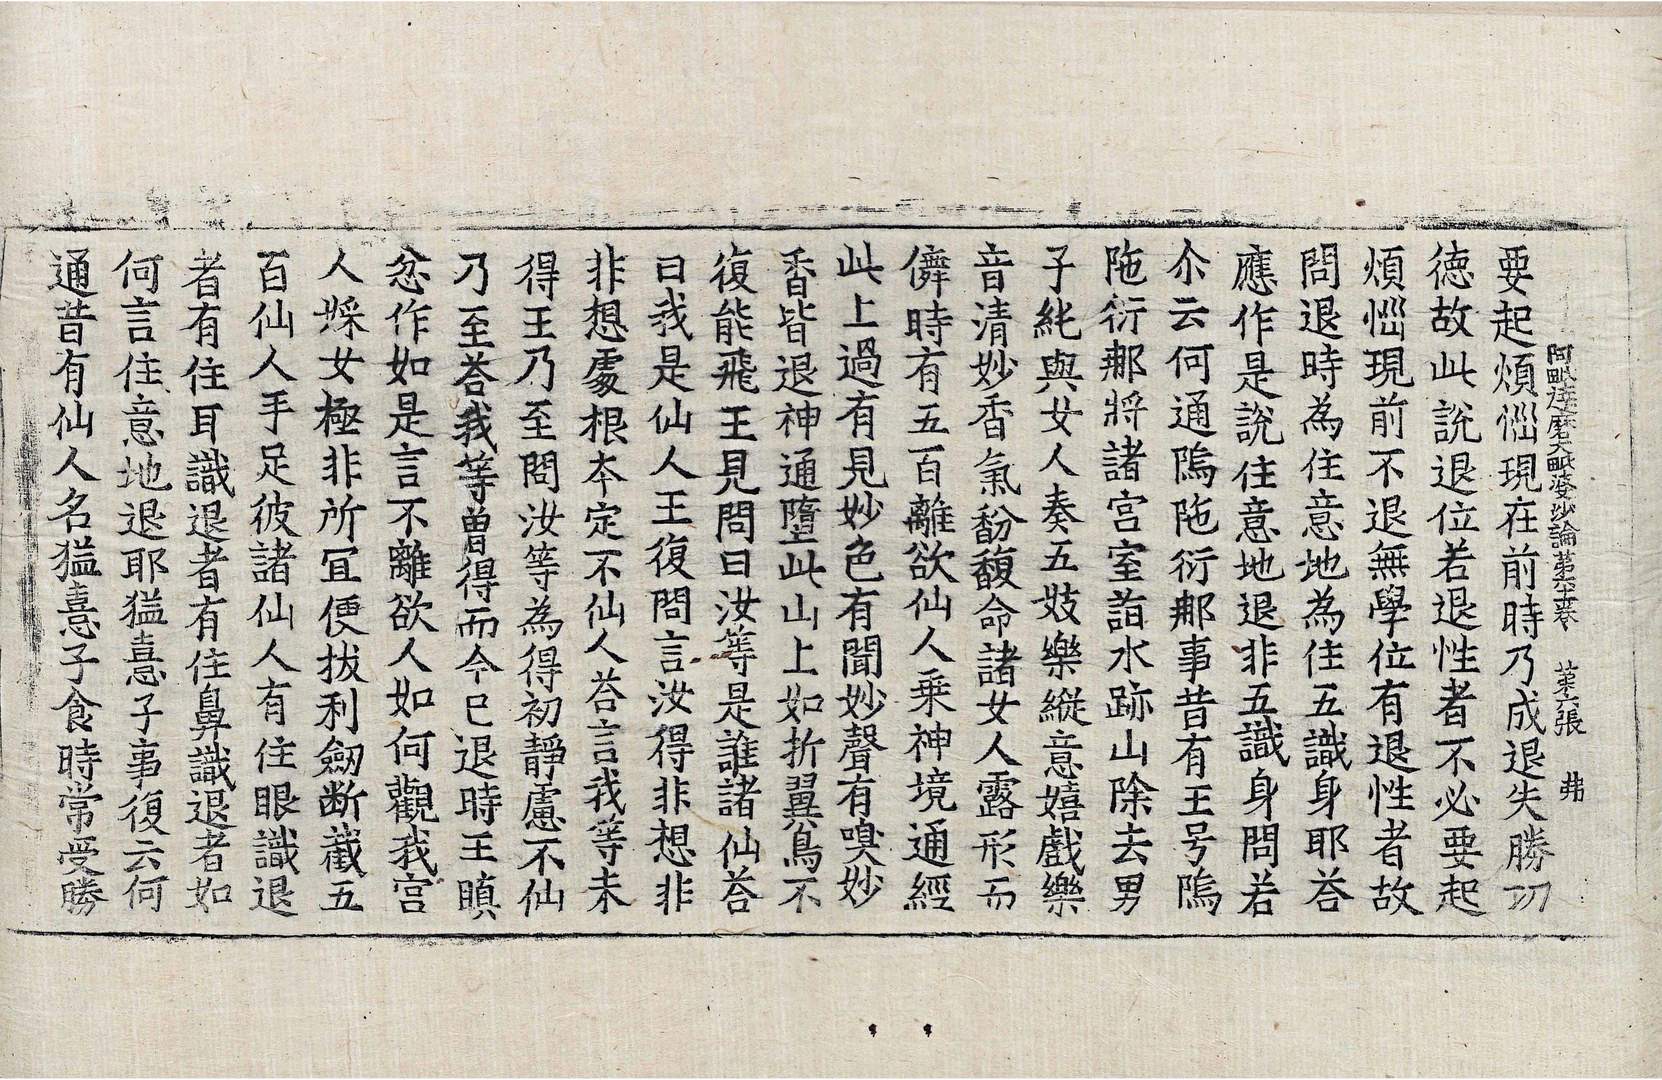 阿毗達磨大毗婆沙論第六十一卷　第六張　弗
要起煩惱現在前時乃成退失勝功
德故此說退位若退性者不必要起
煩惱現前不退無學位有退性者故
問退時為住意地為住五識身耶荅
應作是說住意地退非五識身問若
尒云何通隖陁衍那事昔有王号隖
陁衍那將諸宮室詣水跡山除去男
子純與女人奏五妓樂縱意嬉戲樂
音清妙香氣馚馥命諸女人露形而
儛時有五百離欲仙人乘神境通經
此上過有見妙色有聞妙聲有嗅妙
香皆退神通墮此山上如折翼鳥不
復能飛王見問曰汝等是誰諸仙荅
曰我是仙人王復問言汝得非想非
非想處根本定不仙人荅言我等未
得王乃至問汝等為得初靜慮不仙
乃至荅我等曾得而今已退時王瞋
忿作如是言不離欲人如何觀我宮
人婇女極非所冝便拔利劒斷截五
百仙人手足彼諸仙人有住眼識退
者有住耳識退者有住鼻識退者如
何言住意地退耶猛憙子事復云何
通昔有仙人名猛憙子食時常受勝